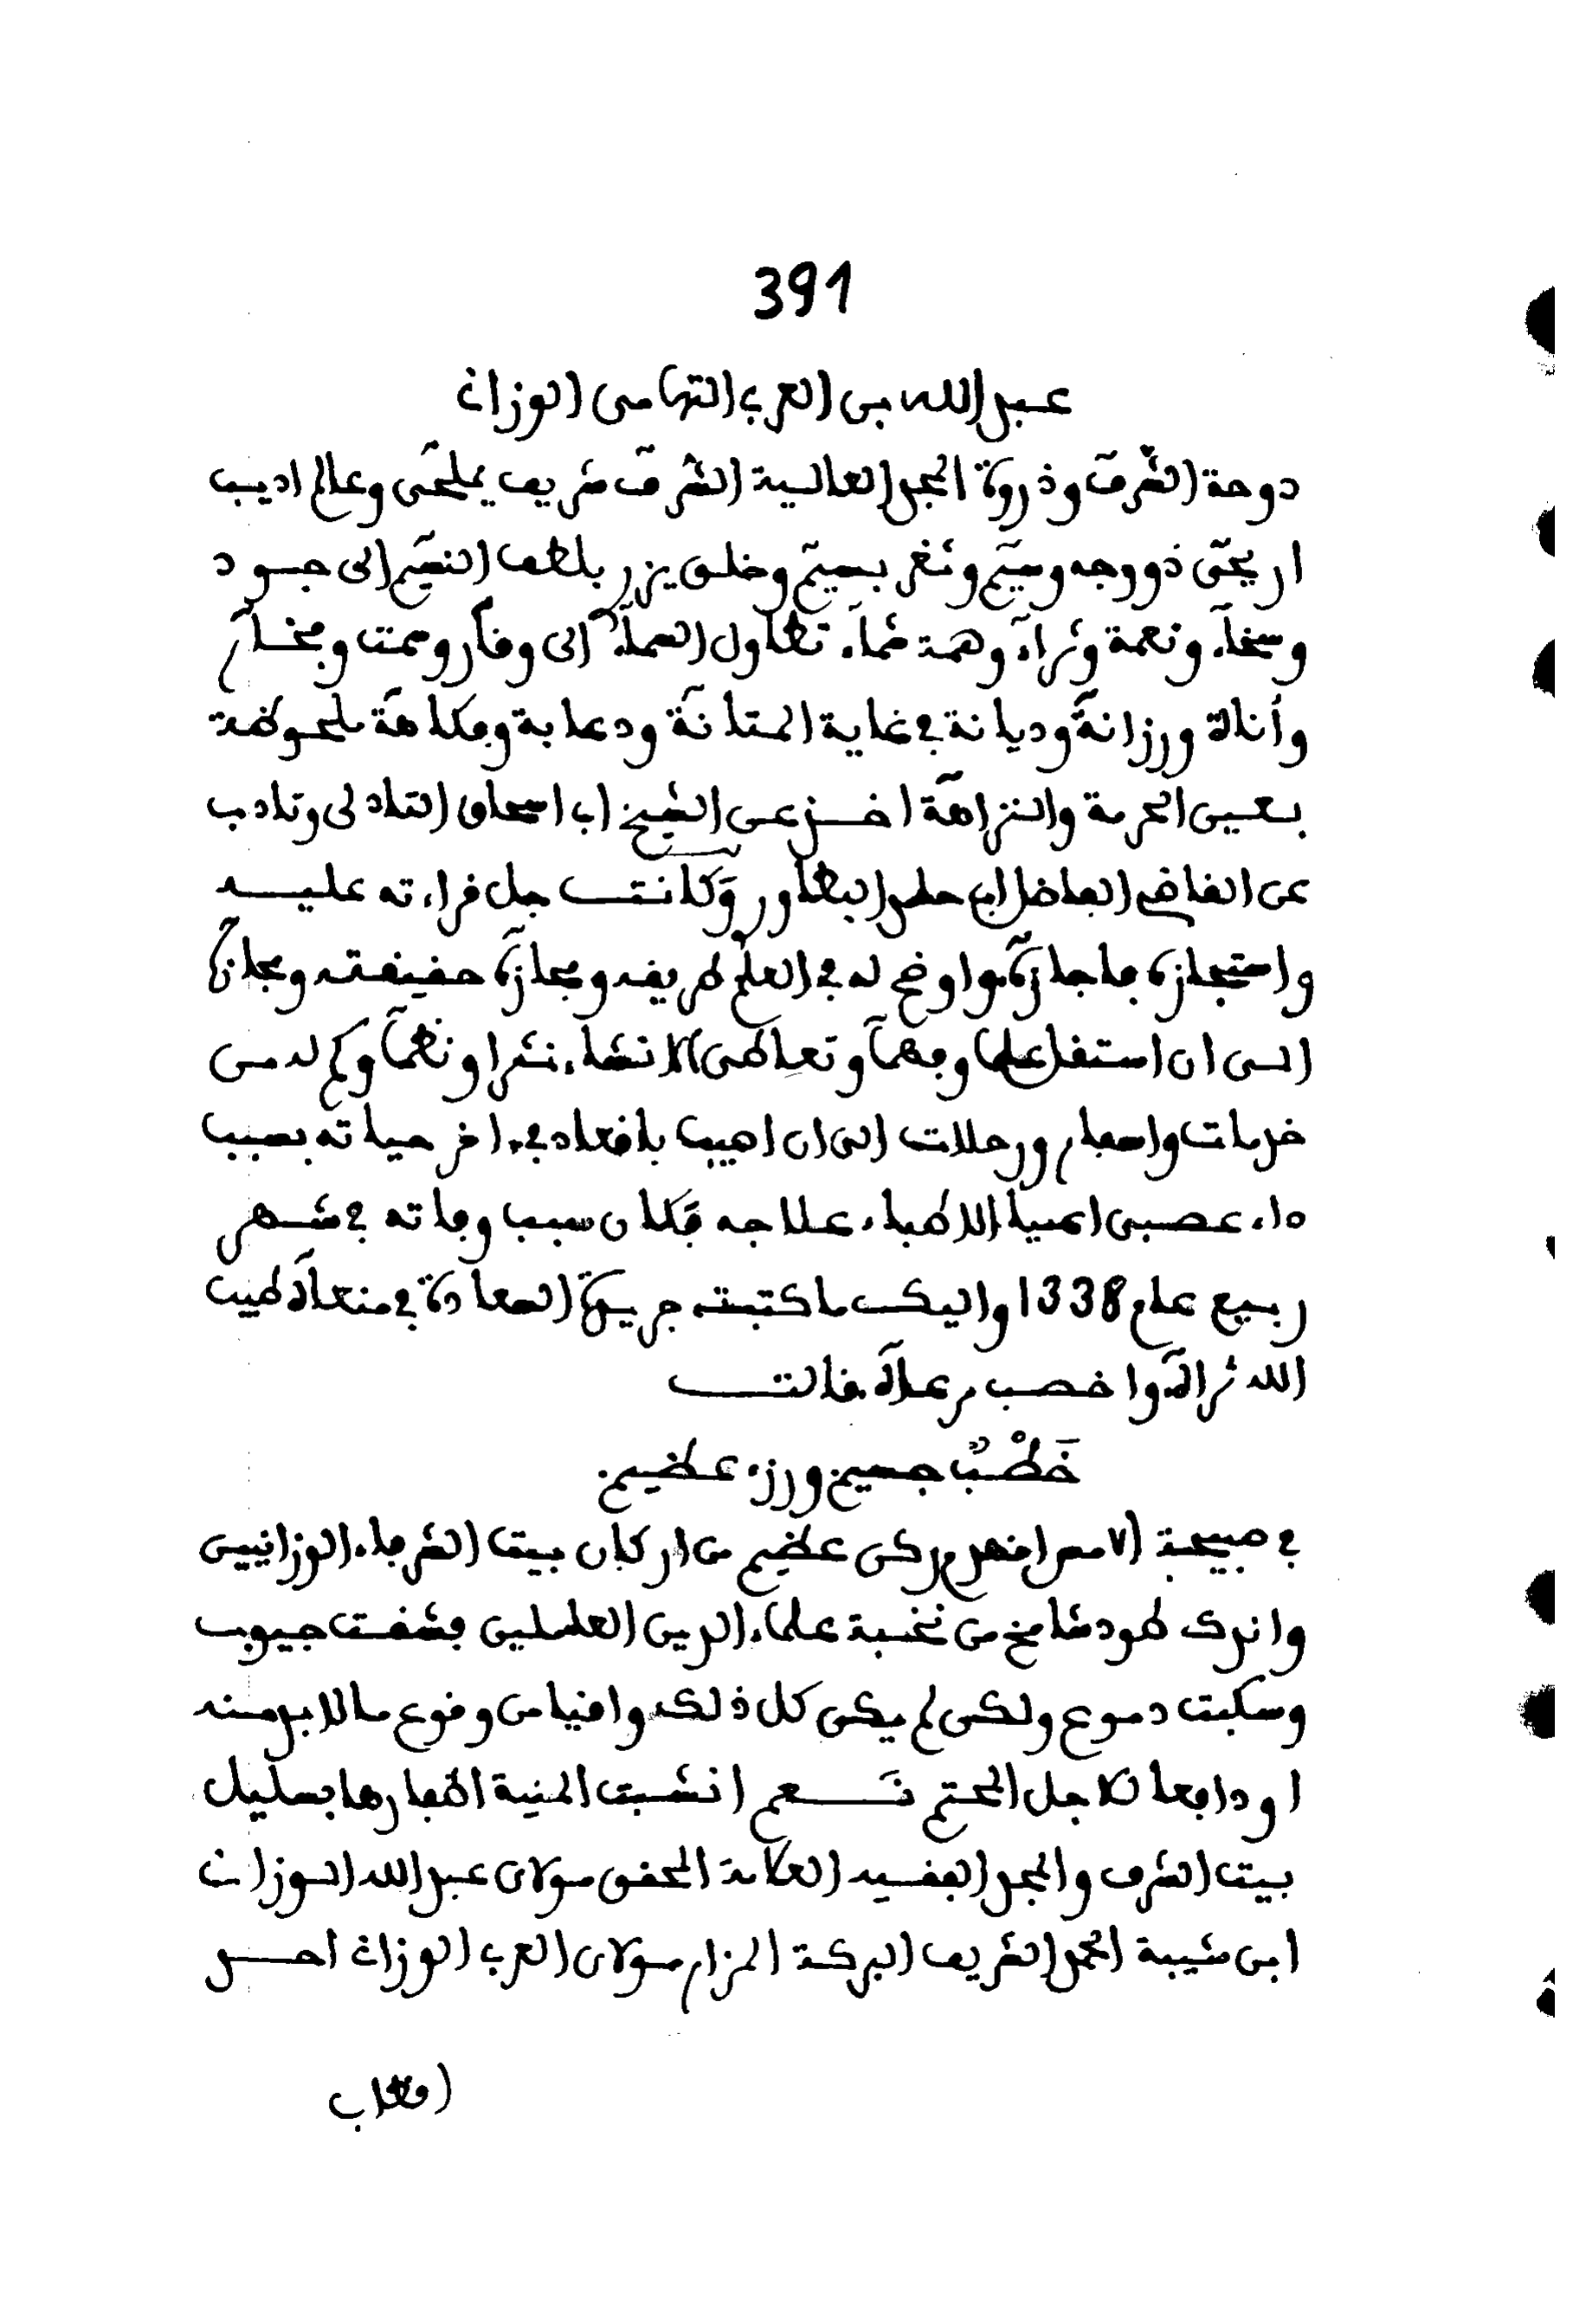 391
عبد الله بن العربي التهامي الوزاني
دوحة الشرف وذروة المجد العالية الشرف شريف يملحي وعالم اديب
اريحي ذو وجه وسيم وثغر بسيم وخلق يزري بلطف النسيم الى جود
وسخاء ونعمة وثراء وهمة شماء تطاول السماء الى وقار وسمت وفخار
وأناة ورزانة وديانة في غاية المتانة ودعابة وفكاهة ملحوظة
بعين الحرمة والنزاهة اخذ عن الشيخ ابي اسحاق التادلي وتادب
عن القاضي الفاضل ابي حامد البطاوري وكانت جل قراءته عليه
واستجازه فاجازه واوضح له في العلم طريقه ومجازه حقيقته ومجازه
الى ان استقل علما وفهما وتعاطى الانشاء نثرا ونظما وكم له من
خدمات واسفار ورحلات الى ان اصيب باقعاد في ءاخر حياته بسبب
داء عصبي اعيا الاطباء علاجه فكان سبب وفاته في شهر
ربيع عام 1338 واليك ما كتبته جريدة السعادة في منعاه طيب
الله ثراه واخصب مرعاه قالت
خَطْبٌ جسيم ورزء عظيم
في صبيحة الامس انهد ركن عظيم من اركان بيت الشرفاء الوزانيين
واندك طود شامخ من نخبة علماء الدين العاملين فشقت جيوب
وسكبت دموع ولكن لم يكن كل ذلك واقيا من وقوع ما لا بد منه
او دافعا للاجل المحتم نعم انشبت المنية اظفارها بسليل
بيت الشرف والمجد الفقيد العلامة المحقق مولاي عبد الله الوزاني
ابن شيبة الحمد الشريف البركة المزار مولاي العربي الوزاني احد
اقطاب